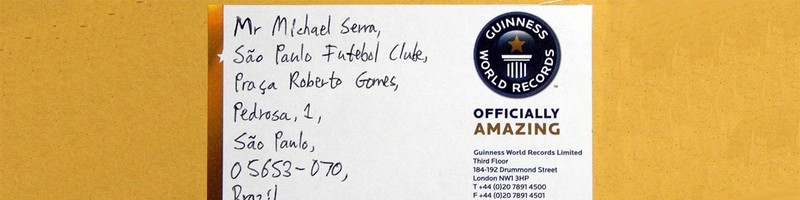 Mr Michael Serra,
São Paulo Futebol Clube,
Praça Roberto Gomes,
Pedrosa, 1,
São Paulo,
05653-070,
Brazil
GUINNESS
WORLD RECORDS
™
OFFICIALLY
AMAZING
Guinness World Records Limited
Third Floor
184-192 Drummond Street
London NW1 3HP
T +44 (0)20 7891 4500
F +44 (0)20 7891 4501